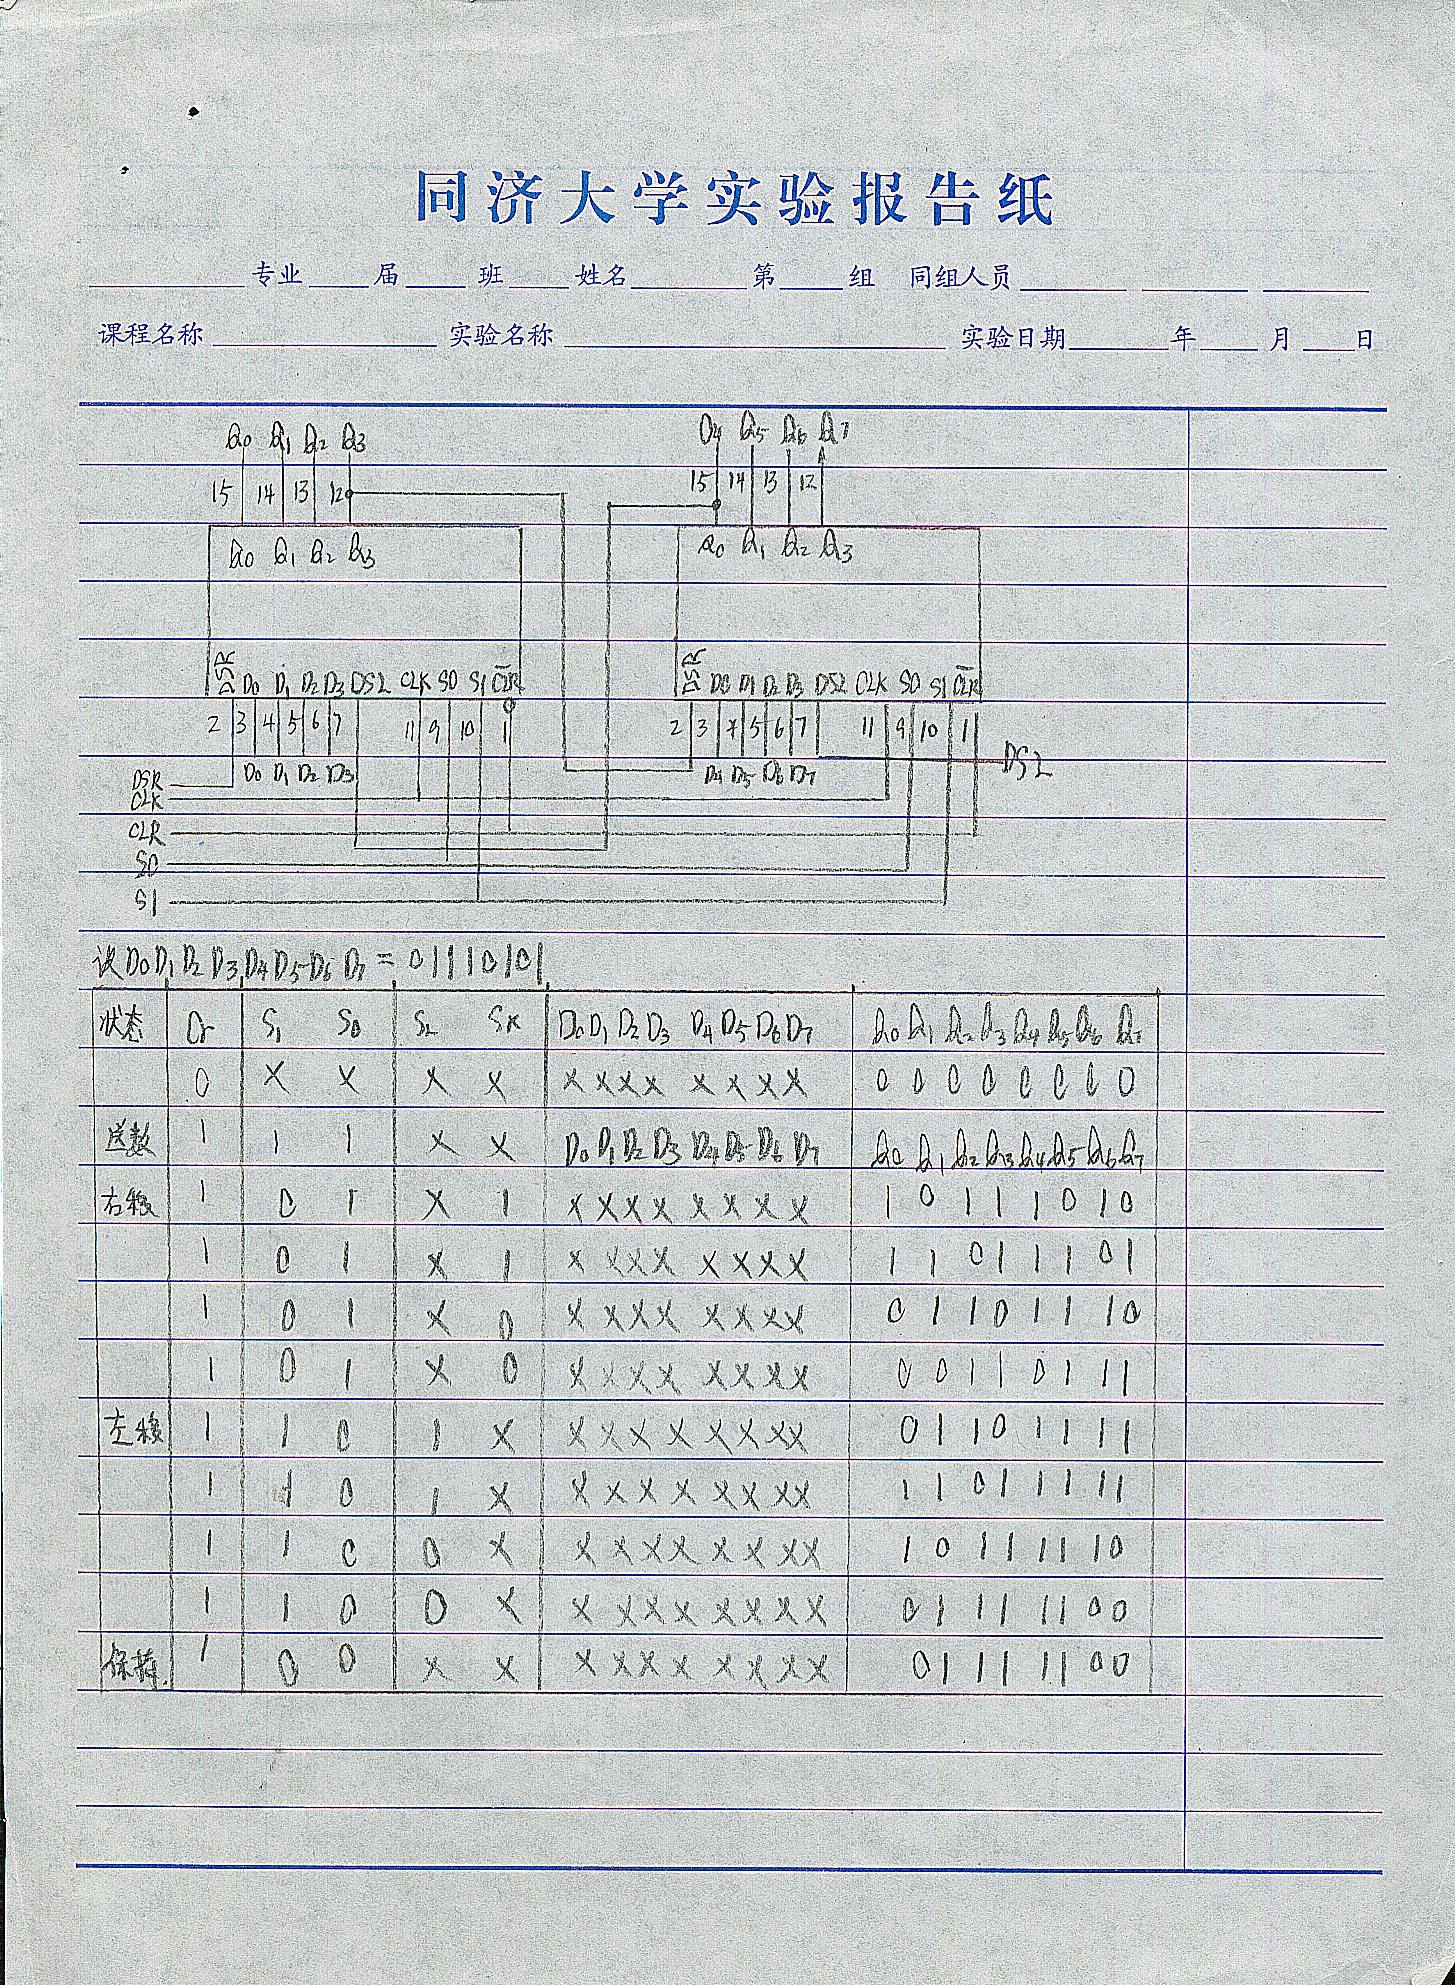 同济大学实验报告纸
专业 届 班 姓名 第 组 同组人员
课程名称 实验名称 实验日期 年 月 日
Q0 Q1 Q2 Q3 Q4 Q5 Q6 Q7
15 14 13 12 15 14 13 12
Q0 Q1 Q2 Q3 Q0 Q1 Q2 Q3
DSR D0 D1 D2 D3 DSL CLK S0 S1 CLR DSR D0 D1 D2 D3 DSL CLK S0 S1 CLR
2 3 4 5 6 7 11 9 10 1 2 3 4 5 6 7 11 9 10 1
DSL
D0 D1 D2 D3 D4 D5 D6 D7
DSR
CLK
CLR
S0
S1
设D0D1D2D3D4D5D6D7=01110101
状态 Cr S1 S0 SL SR D0D1D2D3 D4D5D6D7 Q0Q1Q2Q3Q4Q5Q6Q7
0 X X X X XXXX XXXX 0 0 0 0 0 0 0 0
送数 1 1 1 X X D0D1D2D3 D4D5D6D7 Q0Q1Q2Q3Q4Q5Q6Q7
右移 1 0 1 X 1 XXXX XXXX 1 0 1 1 1 0 1 0
1 0 1 X 1 XXXX XXXX 1 1 0 1 1 1 0 1
1 0 1 X 0 XXXX XXXX 0 1 1 0 1 1 1 0
1 0 1 X 0 XXXX XXXX 0 0 1 1 0 1 1 1
左移 1 1 0 1 X XXXX XXXX 0 1 1 0 1 1 1 1
1 1 0 1 X XXXX XXXX 1 1 0 1 1 1 1 1
1 1 0 0 X XXXX XXXX 1 0 1 1 1 1 1 0
1 1 0 0 X XXXX XXXX 0 1 1 1 1 1 0 0
保持. 1 0 0 X X XXXX XXXX 0 1 1 1 1 1 0 0